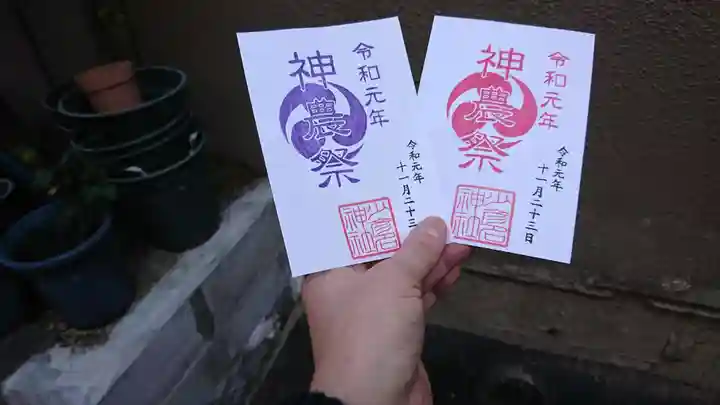 令和元年
神農祭
令和元年
十一月二十三
少彦名
神社
令和元年
神農祭
令和元年
十一月二十三日
少彦名
神社